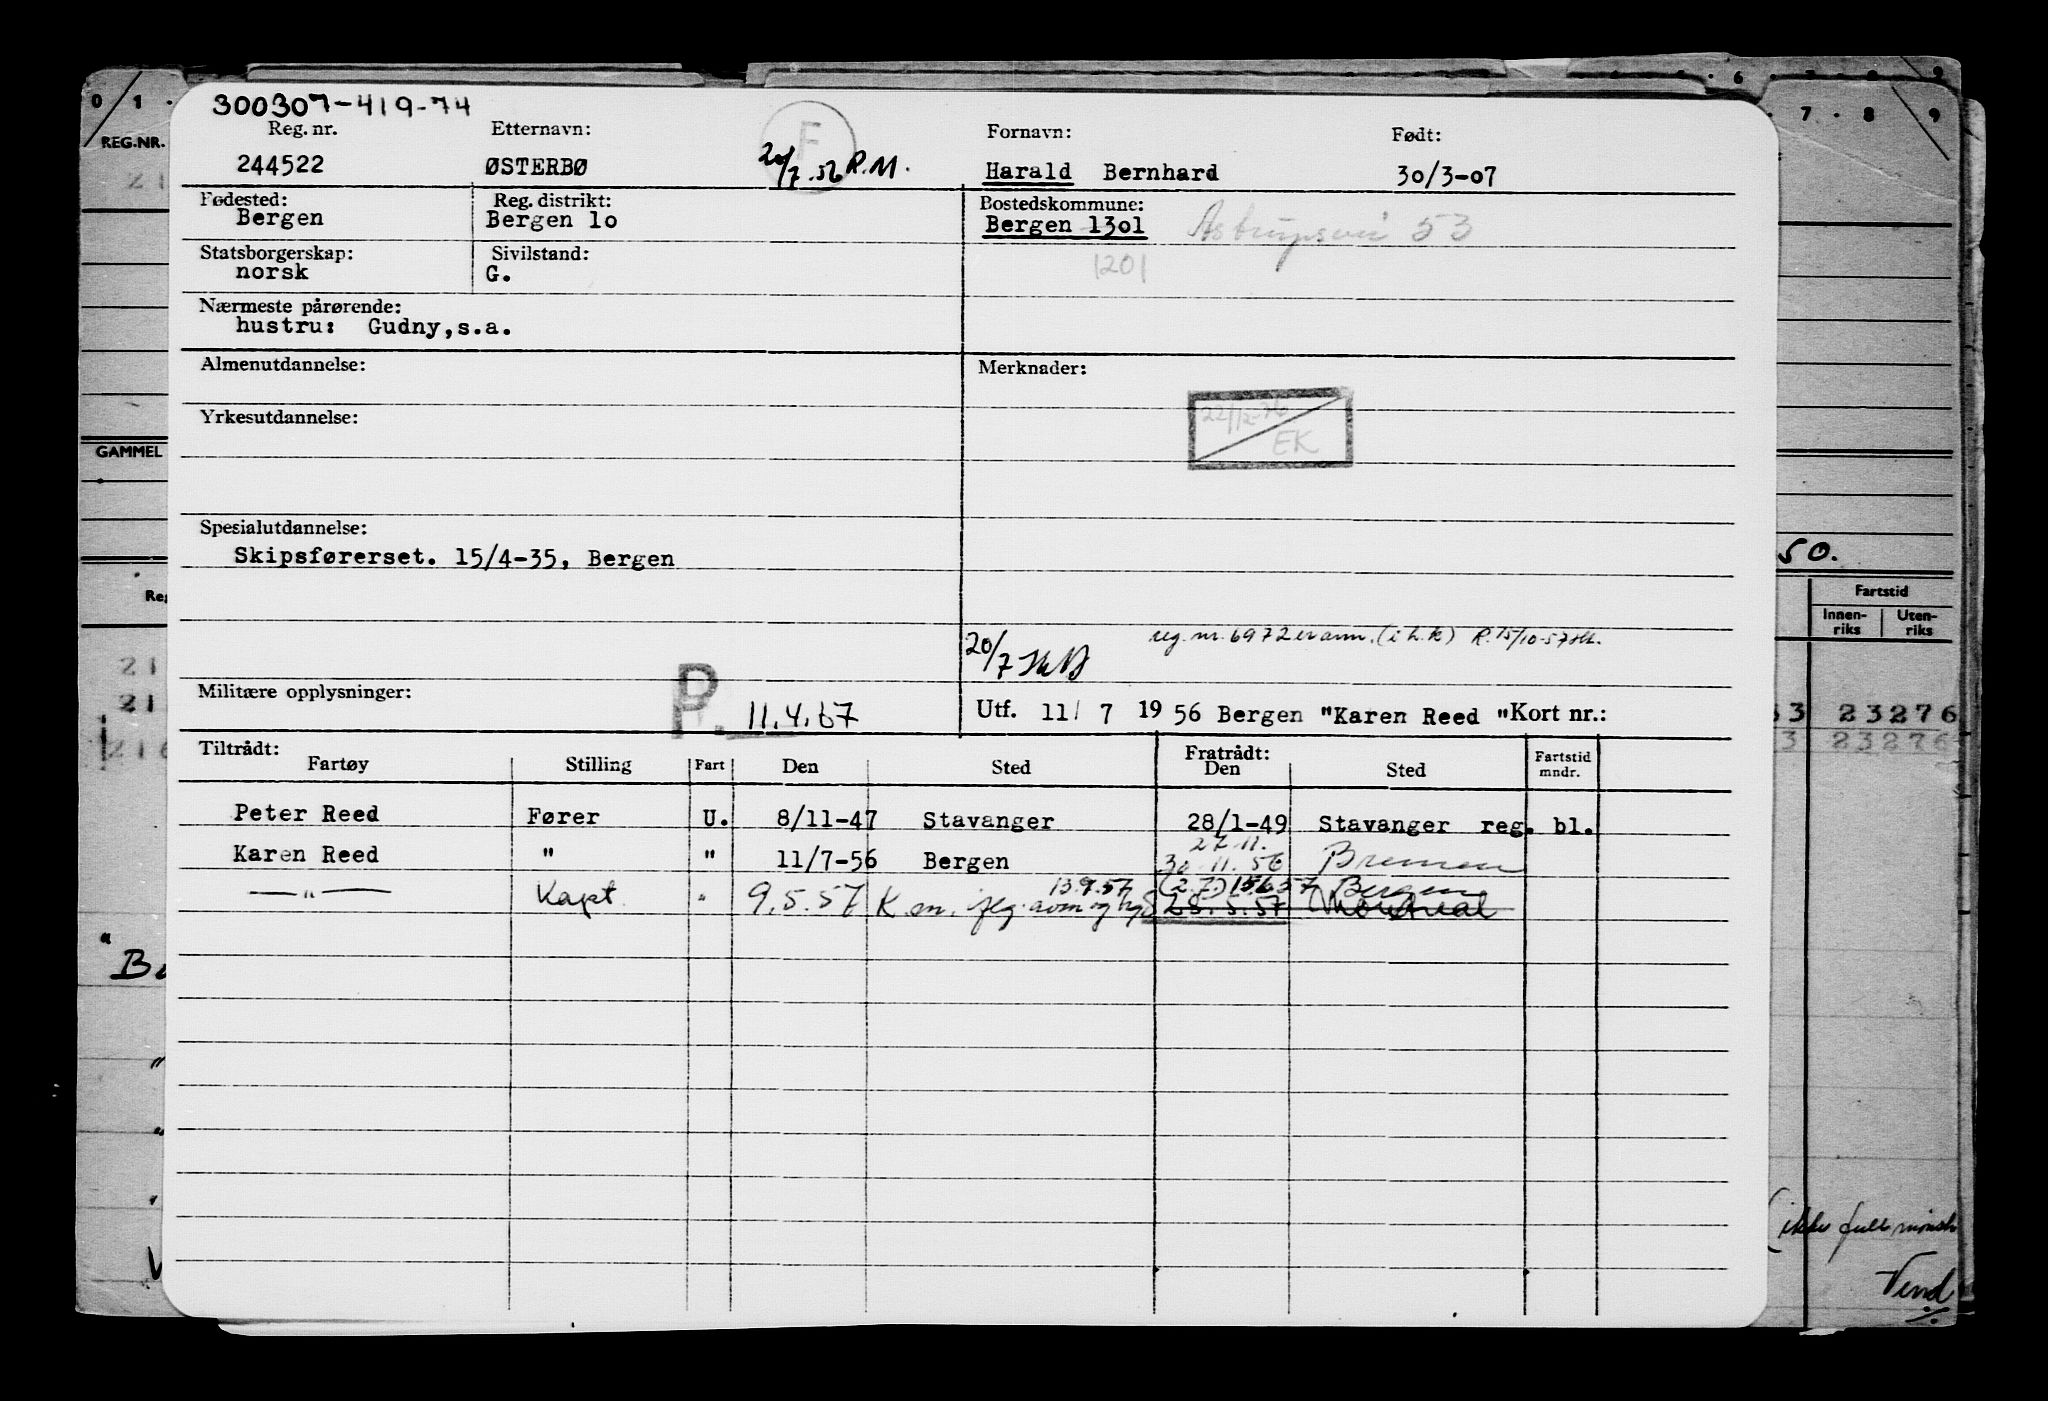 300307-419-74
Reg. nr. Etternavn: Fornavn: Født:
244522 ØSTERBØ F 20/7.56 R.M. Harald Bernhard 30/3-07
Fødested: Reg. distrikt: Bostedskommune:
Bergen Bergen 1o Bergen 13o1 Astrupsvei 53
Statsborgerskap: Sivilstand: 1201
norsk G.
Nærmeste pårørende:
hustru: Gudny,s.a.
Almenutdannelse: Merknader:
Yrkesutdannelse: 22/12-76 EK
Spesialutdannelse:
Skipsførerset. 15/4-35, Bergen
20/7 reg. nr. 6972 er ann. (i h.k) R. 15/10-57
Militære opplysninger: P. 11.4.67 Utf. 11/ 7 19 56 Bergen "Karen Reed "Kort nr.:
Tiltrådt: Fratrådt:
Fartøy Stilling Fart Den Sted Den Sted Fartstid mndr.
Peter Reed Fører U. 8/11-47 Stavanger 28/1-49 Stavanger reg. bl.
27.11.
Karen Reed " " 11/7-56 Bergen 30.11.56 Bremen
13.9.57 (2.7.) 15.6.57 Bergen
—"— Kapt. " 9.5.57 K en. 28.5.57 Montreal
0 1 . 6 . 7 . 8 . 9
REG.NR. . 7 . 8 9
21
GAMMEL
50.
Reg Fartstid
Innen-riks Uten-riks
21
21 3 23276
216 3 23276
"
B
"
"
"
V
(ikke full
Vend